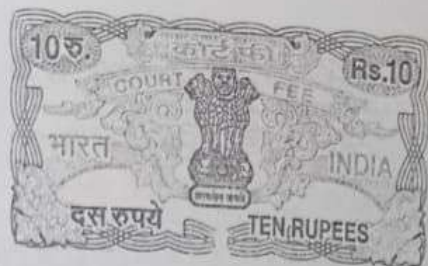 10 रु.
कोर्ट फी
Rs.10
COURT FEE
भारत
INDIA
दस रुपये
TEN RUPEES